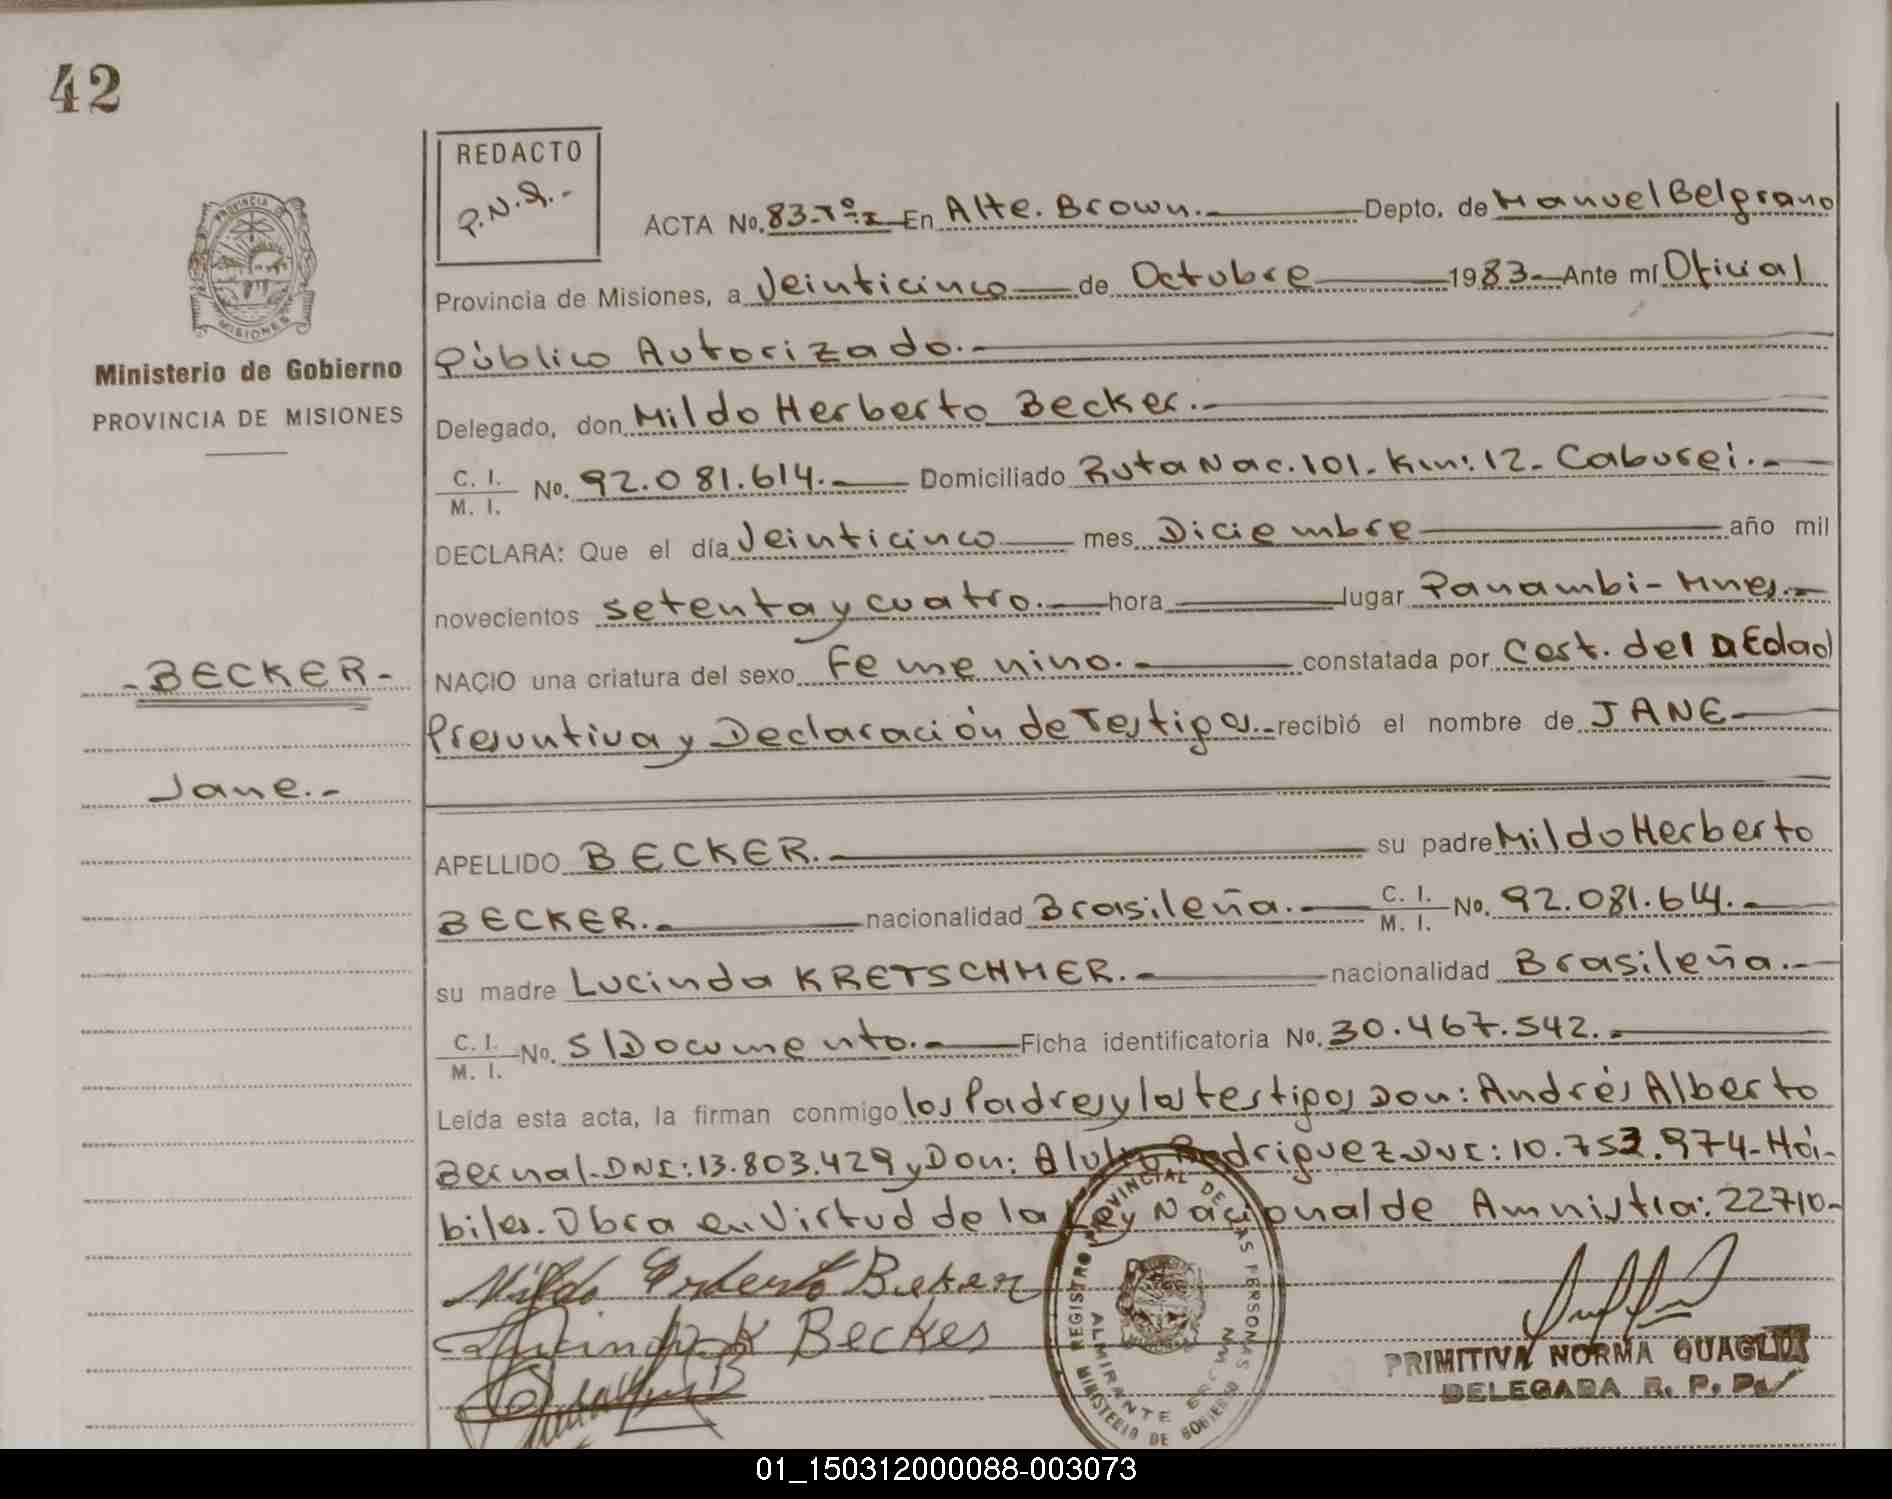 42
REDACTO
P.N.Q.-
ACTA No. 83-Tº:I En Alte. Brown. Depto. de Manuel Belgrano
PROVINCIA DE
MISIONES
Provincia de Misiones, a Veinticinco de Octubre 1983 Ante mí Oficial
Ministerio de Gobierno
PROVINCIA DE MISIONES
Público Autorizado.-
Delegado, don Mildo Herberto Becker.-
C. I.
M. I. No. 92.081.614.- Domiciliado Ruta Nac. 101. Km: 12- Caburei.-
DECLARA: Que el día Veinticinco mes Diciembre año mil
novecientos setenta y cuatro. hora lugar Panambi- Mnes.-
-BECKER-
NACIO una criatura del sexo Femenino.- constatada por Cert. del a Edad
Presuntiva y Declaración de Testigos.- recibió el nombre de JANE
Jane.-
APELLIDO BECKER.- su padre Mildo Herberto
BECKER.- nacionalidad Brasileña.- C. I.
M. I. No. 92.081.614.-
su madre Lucinda KRETSCHMER.- nacionalidad Brasileña.-
C. I.
M. I. No. S/Documento.- Ficha identificatoria No. 30.467.542.-
Leída esta acta, la firman conmigo los Padres y los testigos Don: Andrés Alberto
Bernal-DNI: 13.803.429 y Don: Rodriguez DNI: 10.753.974- Hái-
biles. Obra en Virtud de la Ley Nacional de Amnistia: 22710-
Mildo Erderto Beker
Lucinda K Beckes
REGISTRO PROVINCIAL DE LAS PERSONAS
MINISTERIO DE GOBIERNO
ALMIRANTE BROWN
PRIMITIVA NORMA QUAGLIA
DELEGADA R. P. P.
01_150312000088-003073